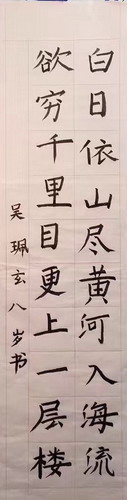 白日依山尽黄河入海流
欲穷千里目更上一层楼
吴珮玄八岁书